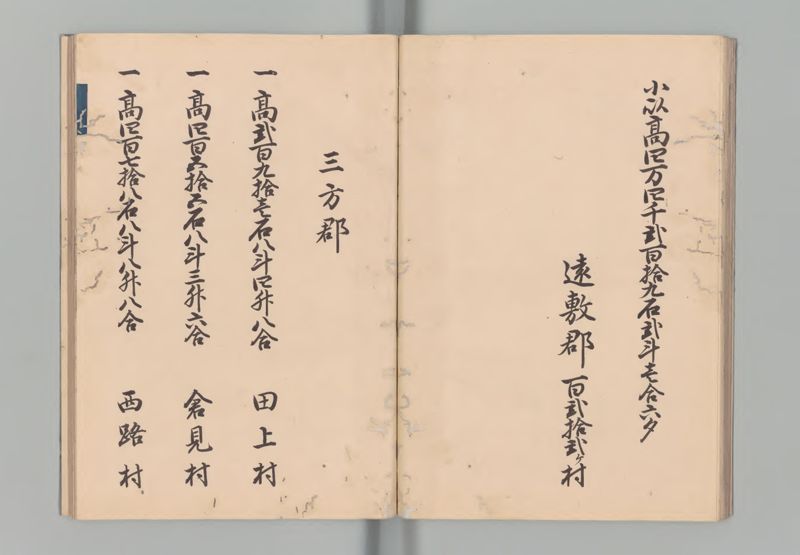 小以高四万四千弐百拾九石弐斗壱合六夕
遠敷郡 百弐拾弐ケ村
三方郡
一 高弐百九拾壱石八斗四升八合 田上村
一 高四百五拾五石八斗三升六合 倉見村
一 高四百七拾八石八斗八升八合 西路村